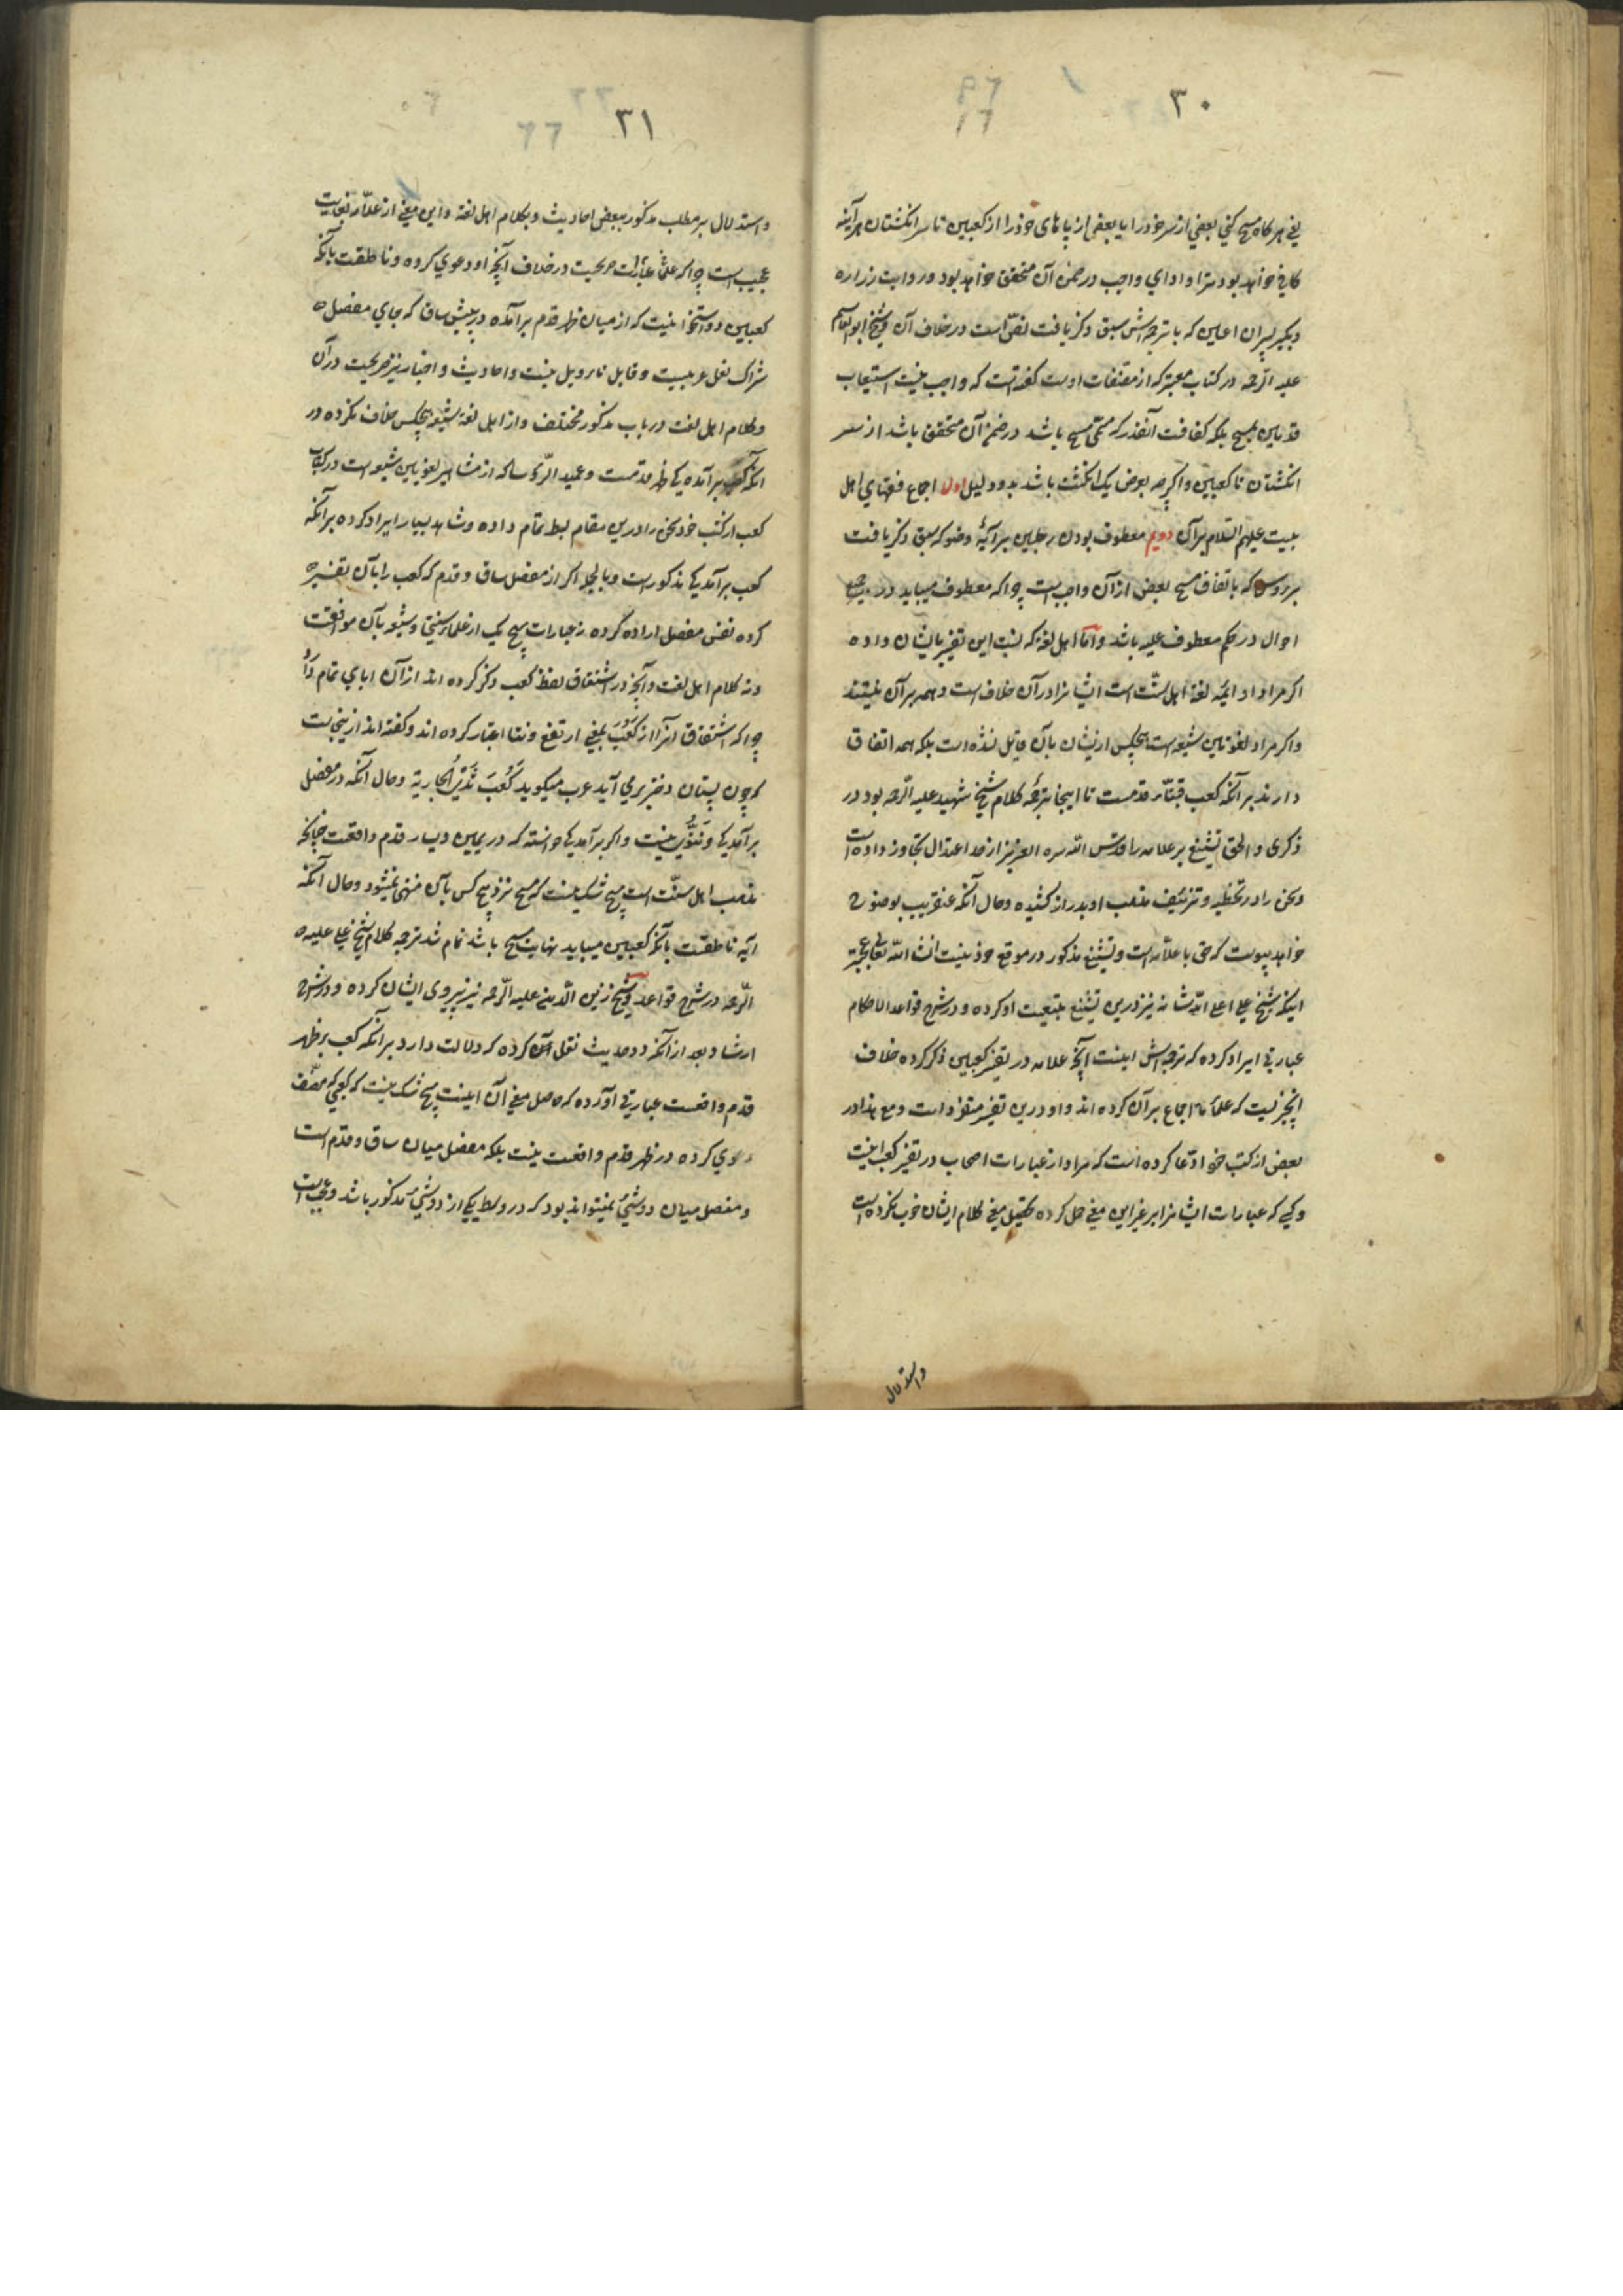 ۳۰
یعنی هرگاه مسح کنی بعضی از سر خود را یا بعضی از پاهای خود را از کعبین تا سر انگشتان هر آینه
کافی خواهد بود ترا و ادای واجب در ضمن آن متحقق خواهد بود و روایت زراره
و بکیر پسران اعین که با ترجمه‌اش سبق ذکر یافت نصّ است در خلاف آن و شیخ ابو القاسم
علیه الرحمه در کتاب معتبر که از مصنفات اوست گفته است که واجب نیست استیعاب
قدمین بمسح بلکه کفافت آنقدر که مسمّی مسح باشد در ضمن آن متحقق باشد از سر
انگشتان تا کعبین و اگرچه بعرض یک انگشت باشد بدو دلیل اول اجماع فقهای اهل
بیت علیهم السلام بر آن دویم معطوف بودن رجلین بر آیۀ وضو که سبق ذکر یافت
بر رؤس که باتفاق مسح بعض از آن واجبست چرا که معطوف میباید در جمیع
احوال در حکم معطوف علیه باشد و امّا اهل لغة که نسبت این تفسیر بایشان داده
اگر مراد او ایمّه لغة اهل سنّت است ایشانرا در آن خلاف است و همه بر آن نیستند
و اگر مراد لغویین شیعه است هیچکس ازیشان بآن قایل نشده است بلکه همه اتفاق
دارند بر آنکه کعب قبّۀ قدمست تا اینجا ترجمۀ کلام شیخ شهید علیه الرّحمه بود در
ذکری و الحق تشنیع بر علامه را قدّس الله سره العزیز از حد اعتدال تجاوز داده است
و سخن را در تخطیه و تزئیف مذهب او بدراز کشیده و حال آنکه عنقریب بوضوح
خواهد پیوست که حق با علّامه است و تشنیع مذکور در موقع خود نیست انشا الله تعالی عجبتر
اینکه شیخ علی اعلی الله شانه نیز درین تشنیع بتبعیت او کرده و در شرح قواعد الاحکام
عبارتی ایراد کرده که ترجمه‌اش اینست آنچه علامه در تفسیر کعبین ذکر کرده خلاف
آنچیزیست که علمأ ما اجماع بر آن کرده اند و او درین تفسیر متفرد است و مع هذا در
بعضی از کتب خود ادّعا کرده است که مراد از عبارات اصحاب در تفسیر کعب اینست
و کسی که عبارات ایشانرا بر غیر این معنی حمل کرده تحصیل معنی کلام ایشان خوب نکرده است
واستدلال
۳۱
و استدلال بر مطلب مذکور ببعض احادیث و بکلام اهل لغة و این معنی از علّامه بغایت
عجیب است چرا که علمأ عبارات صریحیت در خلاف آنچه او دعوی کرده و ناطقست بآنکه
کعبین دو استخوانیست که از میان ظهر قدم برآمده در پیش ساق که جای مفصل
شراک نعل عربیست و قابل تاویل نیست و احادیث و اخبار نیز صریحیت در آن
و کلام اهل لغت در باب مذکور مختلف و از اهل لغة شیعه هیچکس خلاف نکرده در
آنکه کعب برآمدگی ظهر قدمست و عمید الرّؤسا که از مشاهیر لغویین شیعه است در کتاب
کعب از کتب خود سخن را درین مقام بسط تمام داده و شاهد بسیار ایراد کرده بر آنکه
کعب برآمدگی مذکور است و بالجمله اگر از مفصل ساق و قدم که کعب را بآن تفسیر
کرده نفس مفصل اراده کرده نه عبارات هیچ یک از علماء سنّی و شیعه بآن موافقت
و نه کلام اهل لغت و آنچه در اشتقاق لفظ کعب ذکر کرده اند از آن ابای تمام دارد
چرا که اشتقاق آنرا از کَعَبَ بمعنی ارتفع و نتا اعتبار کرده اند و گفته اند ازینجاست
که چون پستان دختر برمی آید عرب میگوید کَعُبَ ثَدْیُ الجاریة و حال آنکه در مفصل
برآمدگی و نُتوّی نیست و اگر برآمدگی خواسته که در یمین و یسار قدم واقعست چنانکه
مذهب اهل سنّت است هیچ شک نیست که مسح نزد هیچ کس بآن منتهی نمیشود و حال آنکه
آیه ناطقست بآنکه کعبین میباید نهایت مسح باشد تمام شد ترجمه کلام شیخ علی علیه
الرّحمه در شرح قواعد و شیخ زین الدین علیه الرّحمه نیز پیروی ایشان کرده و در شرح
ارشاد بعد از آنکه دو حدیث نقل کرده که دلالت دارد بر آنکه کعب بر ظهر
قدم واقعست عبارتی آورده که حاصل معنی آن اینست هیچ شک نیست که کعبی که مصنّف
دعوی کرده در ظهر قدم واقعست نیست بلکه مفصل میان ساق و قدم است
و مفصل میان دو شیٔ نمیتواند بود که در وسط یکی از دو شیٔ مذکور باشد و عجب است